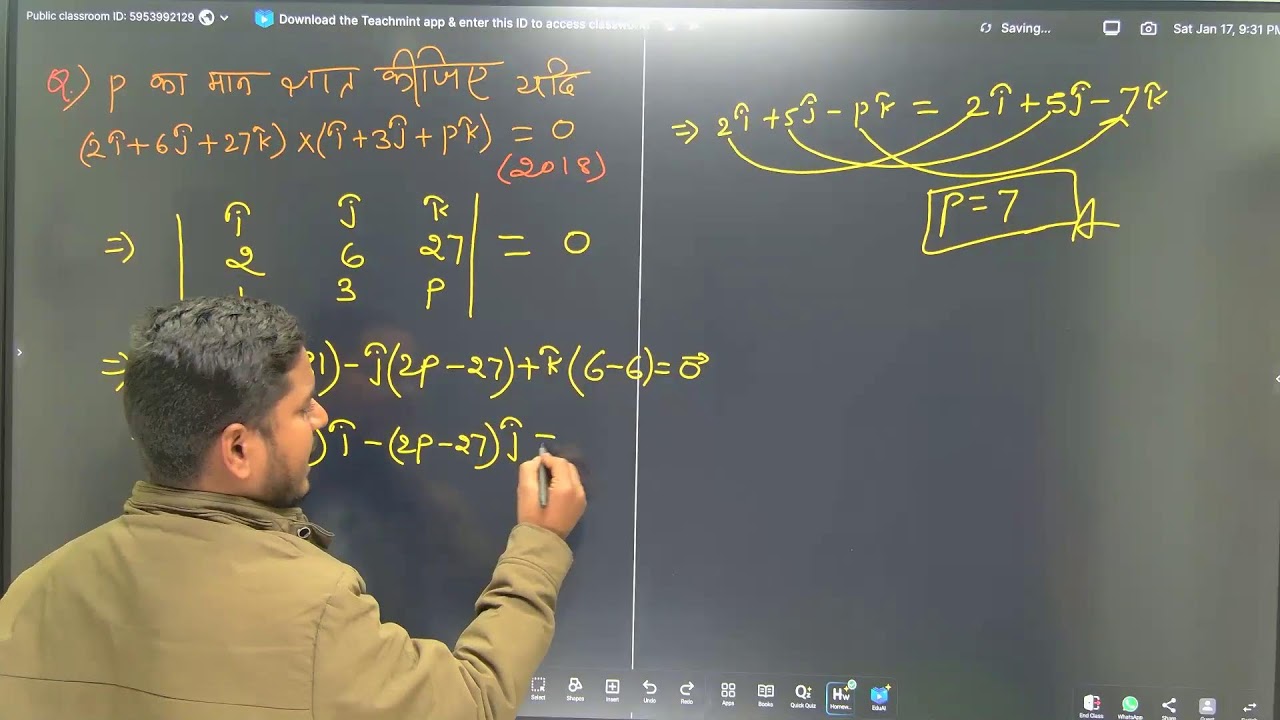 Public classroom ID: 5953992129
Download the Teachmint app & enter this ID to access classwork
Saving...
Sat Jan 17, 9:31 PM
Q.) p का मान ज्ञात कीजिए यदि
(2î+6ĵ+27k̂)×(î+3ĵ+pk̂) = 0
(2018)
⇒ | î ĵ k̂ |
| 2 6 27 | = 0
| 1 3 p |
⇒ 81)-ĵ(2p-27)+k̂(6-6)=0⃗
)î-(2p-27)ĵ =
⇒ 2î+5ĵ-pk̂ = 2î+5ĵ-7k̂
p=7
Select
Shapes
Insert
Undo
Redo
Apps
Books
Quick Quiz
Homew..
EduAI
End Class
WhatsApp
Share